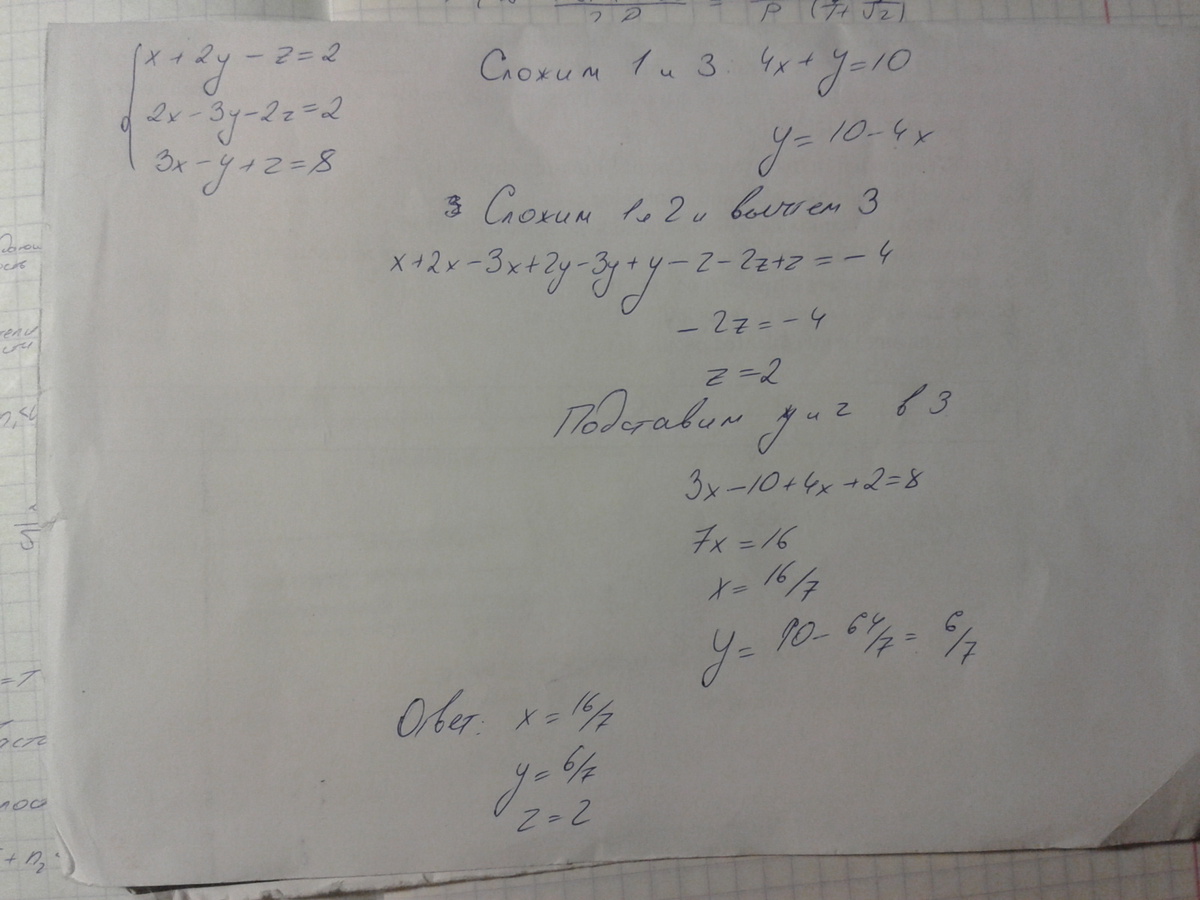 x + 2y - z = 2
2x - 3y - 2z = 2
3x - y + z = 8
Сложим 1 и 3. 4x + y = 10
y = 10 - 4x
Сложим 1 и 2 и вычтем 3
x + 2x - 3x + 2y - 3y + y - z - 2z + z = -4
-2z = -4
z = 2
Подставим y и z в 3
3x - 10 + 4x + 2 = 8
7x = 16
x = 16/7
y = 10 - 64/7 = 6/7
Ответ: x = 16/7
y = 6/7
z = 2
= T
+ n₂